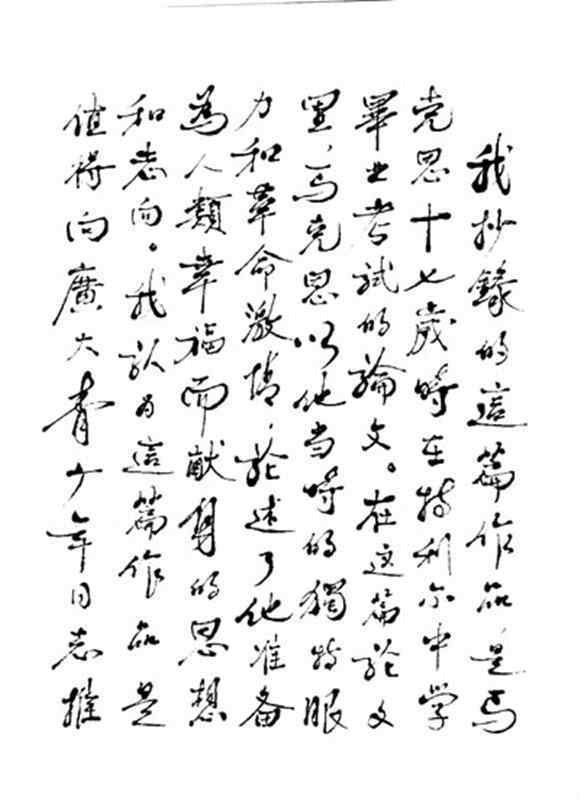 我抄録的這篇作品,是马
克思十七歲時在特利尔中学
畢业考試的論文。在这篇论文
里,马克思以他当時的獨特眼
力和革命激情,论述了他准备
為人類幸福而献身的思想
和志向。我认为這篇作品是
值得向廣大青少年同志推